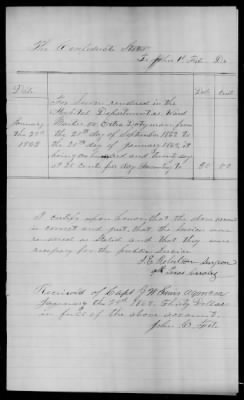 The Confederate States
To John P. Fite Dr
Date
Dr Cents
For Service rendered in the
Hospital Department as Ward
January Master on Extra Duty man from
the 20th the 20th day of September 1862 to
1863 the 20th day of January 1863, it
being one hundred and twenty days
at 25 cents per day Amounting to 30 00
I certify upon honor that the above account
is correct and just, that the service was
rendered as stated and that they were
necessary for the public service
J. E. Robertson Surgeon
Texas Cavalry
Received of Capt J W Lewis
January the 20th 1863. Thirty Dollars
in full of the above account.
John P. Fite